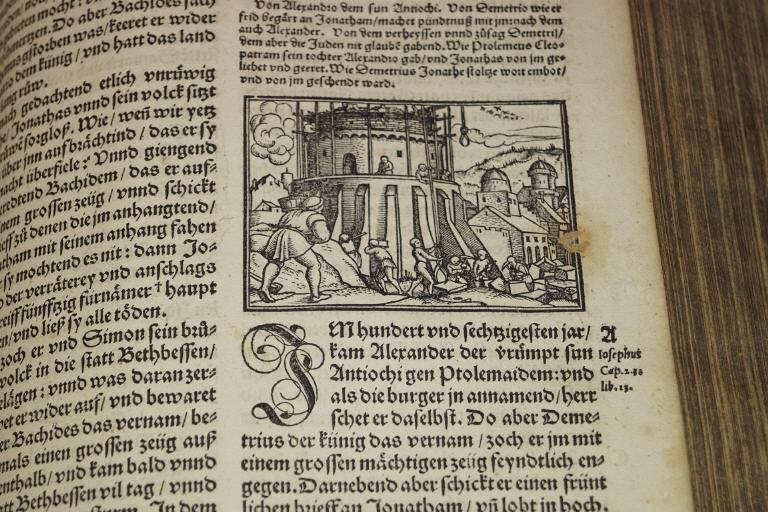 mocht : vnd
metzen. Do aber Bachides sach
gstorben was/keeret er wider
dem künig/vnd hatt das land
lang rüw.
gedachtend etlich vnrüwig
Jonathas vnnd sein volck sitzt
sorgloß. Wie/weñ wir yetz
über jnn aufbrächtind/das er sy
nacht überfiele? Vnnd giengend
redtend Bachidem/das er auf-
nem grossen zeüg/vnnd schickt
zů denen die jm anhangtend/
mit seinem anhang fahen
sy mochtend es nit: dann Jo-
der verräterey vnd anschlags
fünffzig fürnämer † haupt
vnd ließ sy alle töden.
zoch er vnd Simon sein brů-
volck in die statt Bethbessen/
lägen: vnnd was daran zer-
er wider auf/vnd bewaret
Bachides das vernam/be-
mals einen grossen zeüg auß
enthalb/vnd kam bald vnnd
Bethbessen vil tag/vnnd
In dem
Von Alexandro dem sun Antiochi. Von Demetrio wie er
frid begärt an Jonathan/machet pündtnuß mit jm: nach dem
auch Alexander. Von dem verheyssen vnnd zůsag Demetrij/
dem aber die Juden nit glaubē gabend. Wie Ptolemeus Cleo-
patram sein tochter Alexandro gab/vnd Jonathas von jm ge-
liebet vnd geeret. Wie Demetrius Jonathe stoltze wort embot/
vnd von jm geschendt ward.
JM hundert vnd sechtzigesten jar/
kam Alexander der vrümpt sun
Antiochi gen Ptolemaidem: vnd
als die burger jn annamend/herr
schet er daselbst. Do aber Deme-
trius der künig das vernam/zoch er jm mit
einem grossen mächtigen zeüg feyndtlich en-
gegen. Darnebend aber schickt er einen früint
lichen brieff an Jonatham/vñ lobt in hoch.
A
Iosephus
Cap.2.
lib.13.